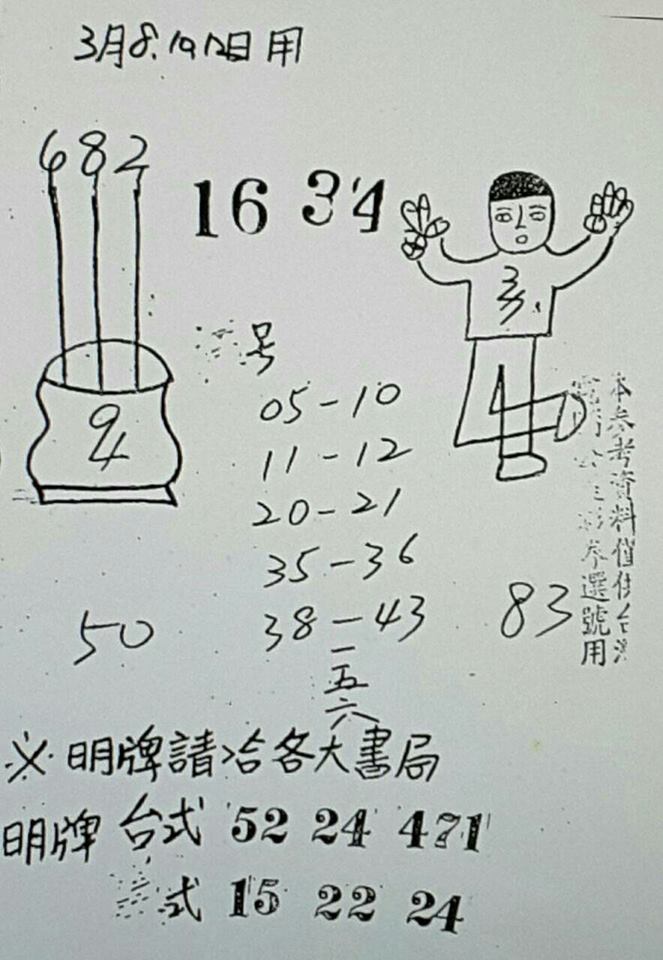 3月8.10.12日用
682
16 34
号
05-10
11-12
20-21
35-36
38-43
一五六
50
83
本參考資料僅供台灣
選號用
※明牌請洽各大書局
明牌 台式 52 24 471
式 15 22 24